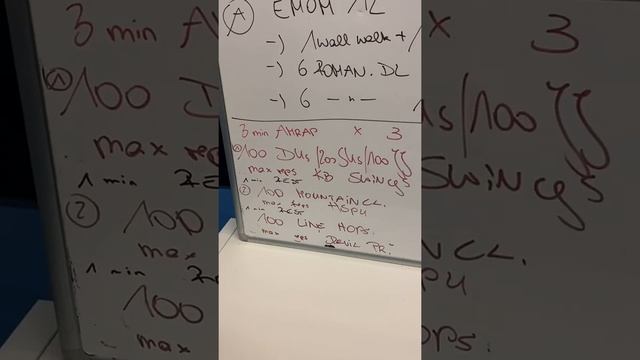 A EMOM /12
-) 1 wall walk +
-) 6 ROMAN. DL
-) 6 -"-
3 min AMRAP x 3
1 100 DUs/200 SUs/100 JJ
max reps KB SWINGS
1 min REST
2 100 MOUNTAINCL.
max reps HSPU
1 min REST
100 LINE HOPS.
max reps DEVIL PR.